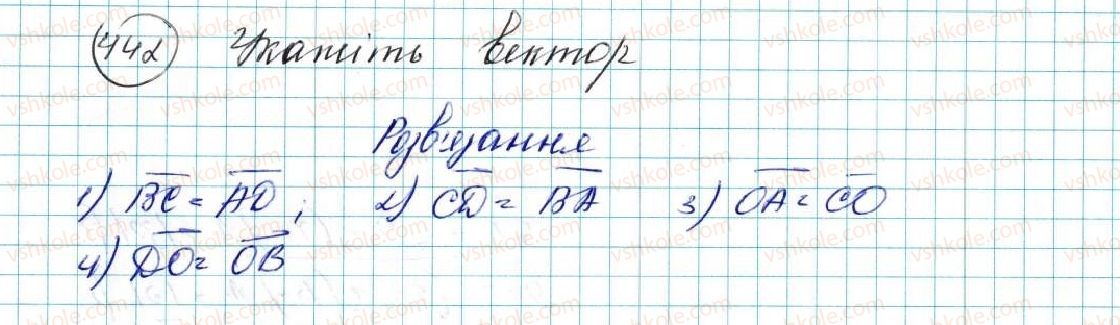 442 Укажіть вектор
Розв'язання
1) BC = AD ; 2) CD = BA 3) OA = CO
4) DO = OB